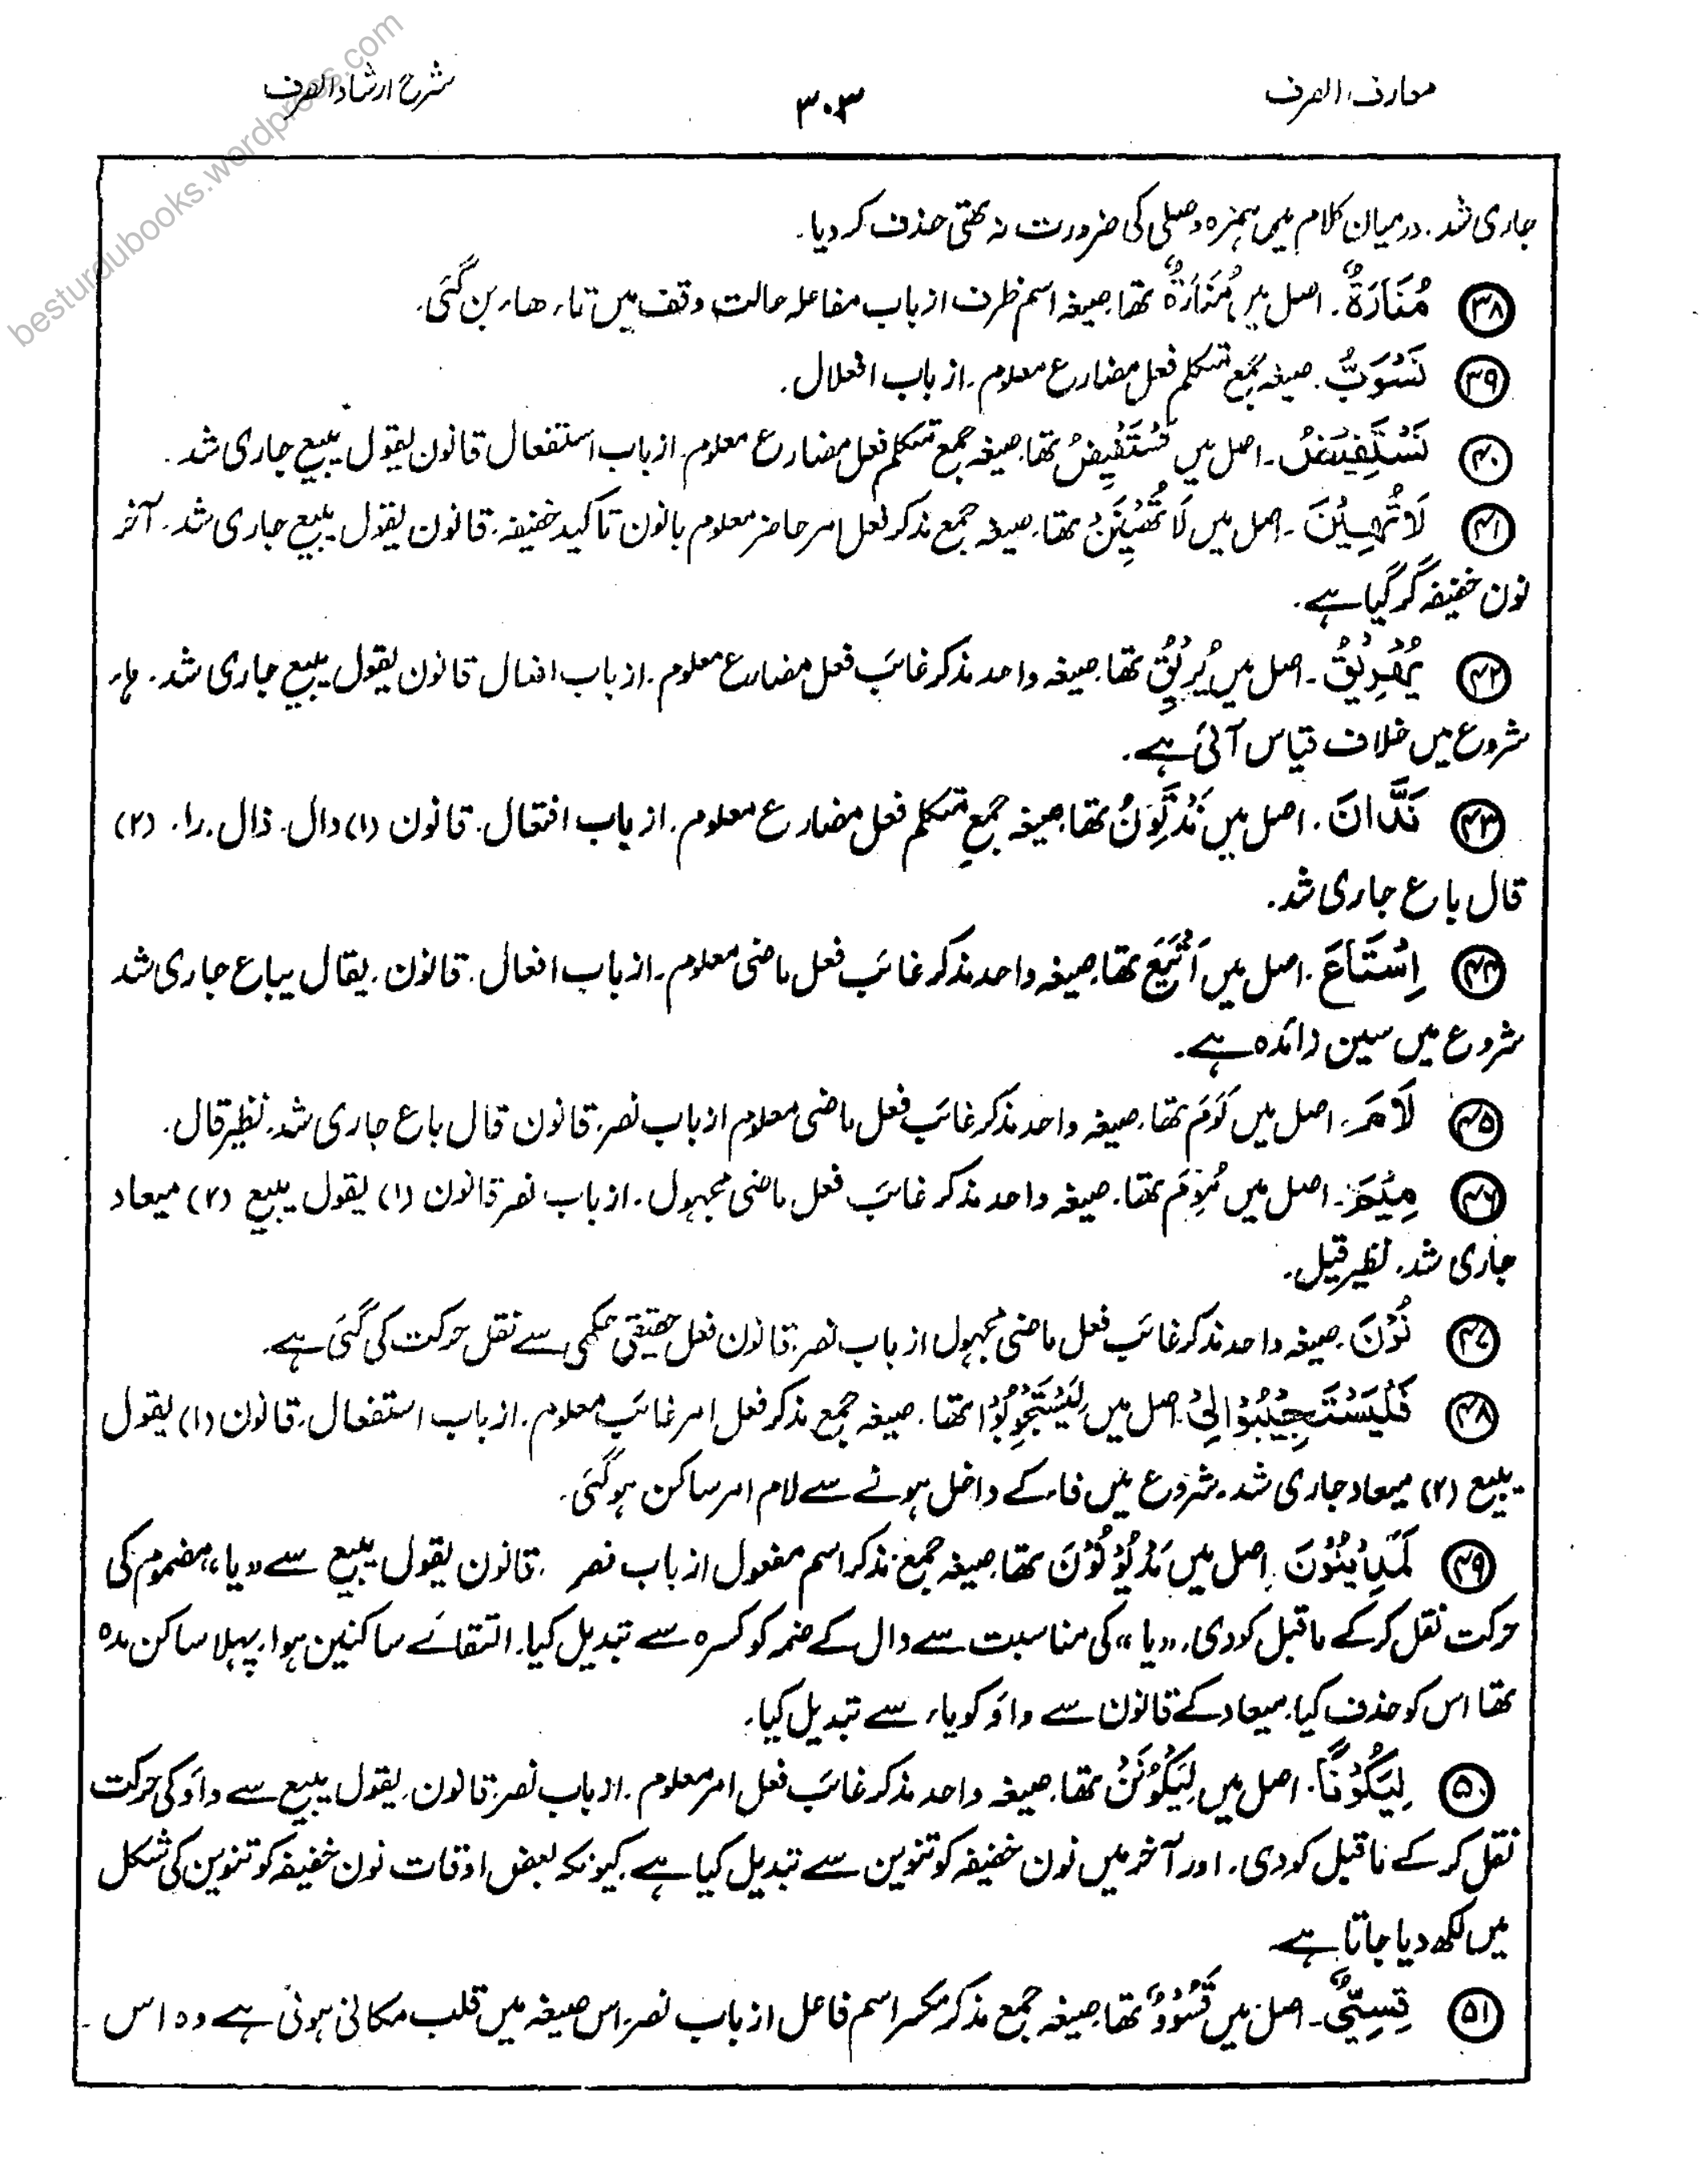 معارف الصرف
۳۰۳
شرح ارشاد الصرف
besturdubooks.wordpress.com
جاری شد۔ درمیان کلام میں ہمزہ وصلی کی ضرورت نہ تھی حذف کر دیا۔
۳۸ مُنَارَةٌ۔ اصل میں تھا صیغہ اسم ظرف از باب مفاعلہ حالت وقف میں تاء ھاء بن گئی۔
۳۹ نَسْوَبُّ۔ صیغہ جمع متکلم فعل مضارع معلوم۔ از باب افعلال۔
۴۰ نَسْتَفِیْضُ۔ اصل میں نَسْتَفْیِضُ تھا صیغہ جمع متکلم فعل مضارع معلوم۔ از باب استفعال قانون یقول یبیع جاری شد۔
۴۱ لَا تُهِیْنَ۔ اصل میں تھا۔ صیغہ جمع مذکر فعل امر حاضر معلوم بانون تاکید خفیفہ۔ قانون یقول یبیع جاری شد۔ آخر
نون خفیفہ گر گیا ہے۔
۴۲ یُهْرِیْقُ۔ اصل میں یُرْیِقُ تھا۔ صیغہ واحد مذکر غائب فعل مضارع معلوم۔ از باب افعال قانون یقول یبیع جاری شد۔ ہاء
شروع میں خلاف قیاس آئی ہے۔
۴۳ نَدَّانَ۔ اصل میں تھا صیغہ جمع متکلم فعل مضارع معلوم۔ از باب افتعال۔ قانون (۱) دال۔ ذال۔ را۔ (۲)
قال باع جاری شد۔
۴۴ اِسْتَاعَ۔ اصل میں اَتْیَعَ تھا صیغہ واحد مذکر غائب فعل ماضی معلوم۔ از باب افعال۔ قانون۔ یقال یباع جاری شد
شروع میں سین زائدہ ہے۔
۴۵ لَامَ۔ اصل میں لَوَمَ تھا۔ صیغہ واحد مذکر غائب فعل ماضی معلوم از باب نصر۔ قانون قال باع جاری شد۔ نظیر قال۔
۴۶ مِیْمَ۔ اصل میں مُوِمَ تھا۔ صیغہ واحد مذکر غائب فعل ماضی مجہول۔ از باب نصر قانون (۱) یقول یبیع (۲) میعاد
جاری شد۔ نظیر قیل۔
۴۷ نُوْنَ۔ صیغہ واحد مذکر غائب فعل ماضی مجہول از باب نصر۔ قانون فعل حقیقی حکمی سے نقل حرکت کی گئی ہے۔
۴۸ فَلْیَسْتَجِیْبُوْا لِیْ۔ اصل میں لِیَسْتَجْوِبُوْا تھا۔ صیغہ جمع مذکر فعل امر غائب معلوم۔ از باب استفعال۔ قانون (۱) یقول
یبیع (۲) میعاد جاری شد۔ شروع میں فاء کے داخل ہونے سے لام امر ساکن ہو گئی۔
۴۹ لَمَدِیْنُوْنَ۔ اصل میں مَدْیُوْنُوْنَ تھا صیغہ جمع مذکر اسم مفعول از باب نصر۔ قانون یقول یبیع سے «یا» مضموم کی
حرکت نقل کر کے ماقبل کو دی۔ «یا» کی مناسبت سے دال کے ضمہ کو کسرہ سے تبدیل کیا۔ التقائے ساکنین ہوا۔ پہلا ساکن مدہ
تھا اس کو حذف کیا۔ میعاد کے قانون سے واؤ کو یاء سے تبدیل کیا۔
۵۰ لِیَکُوْنًا۔ اصل میں لِیَکْوُنَنْ تھا۔ صیغہ واحد مذکر غائب فعل امر معلوم۔ از باب نصر۔ قانون۔ یقول یبیع سے واؤ کی حرکت
نقل کر کے ماقبل کو دی۔ اور آخر میں نون خفیفہ کو تنوین سے تبدیل کیا ہے۔ کیونکہ بعض اوقات نون خفیفہ کو تنوین کی شکل
میں لکھ دیا جاتا ہے۔
۵۱ قِسِیٌّ۔ اصل میں تھا صیغہ جمع مذکر مکسر اسم فاعل از باب نصر۔ اس صیغہ میں قلب مکانی ہوئی ہے وہ اس